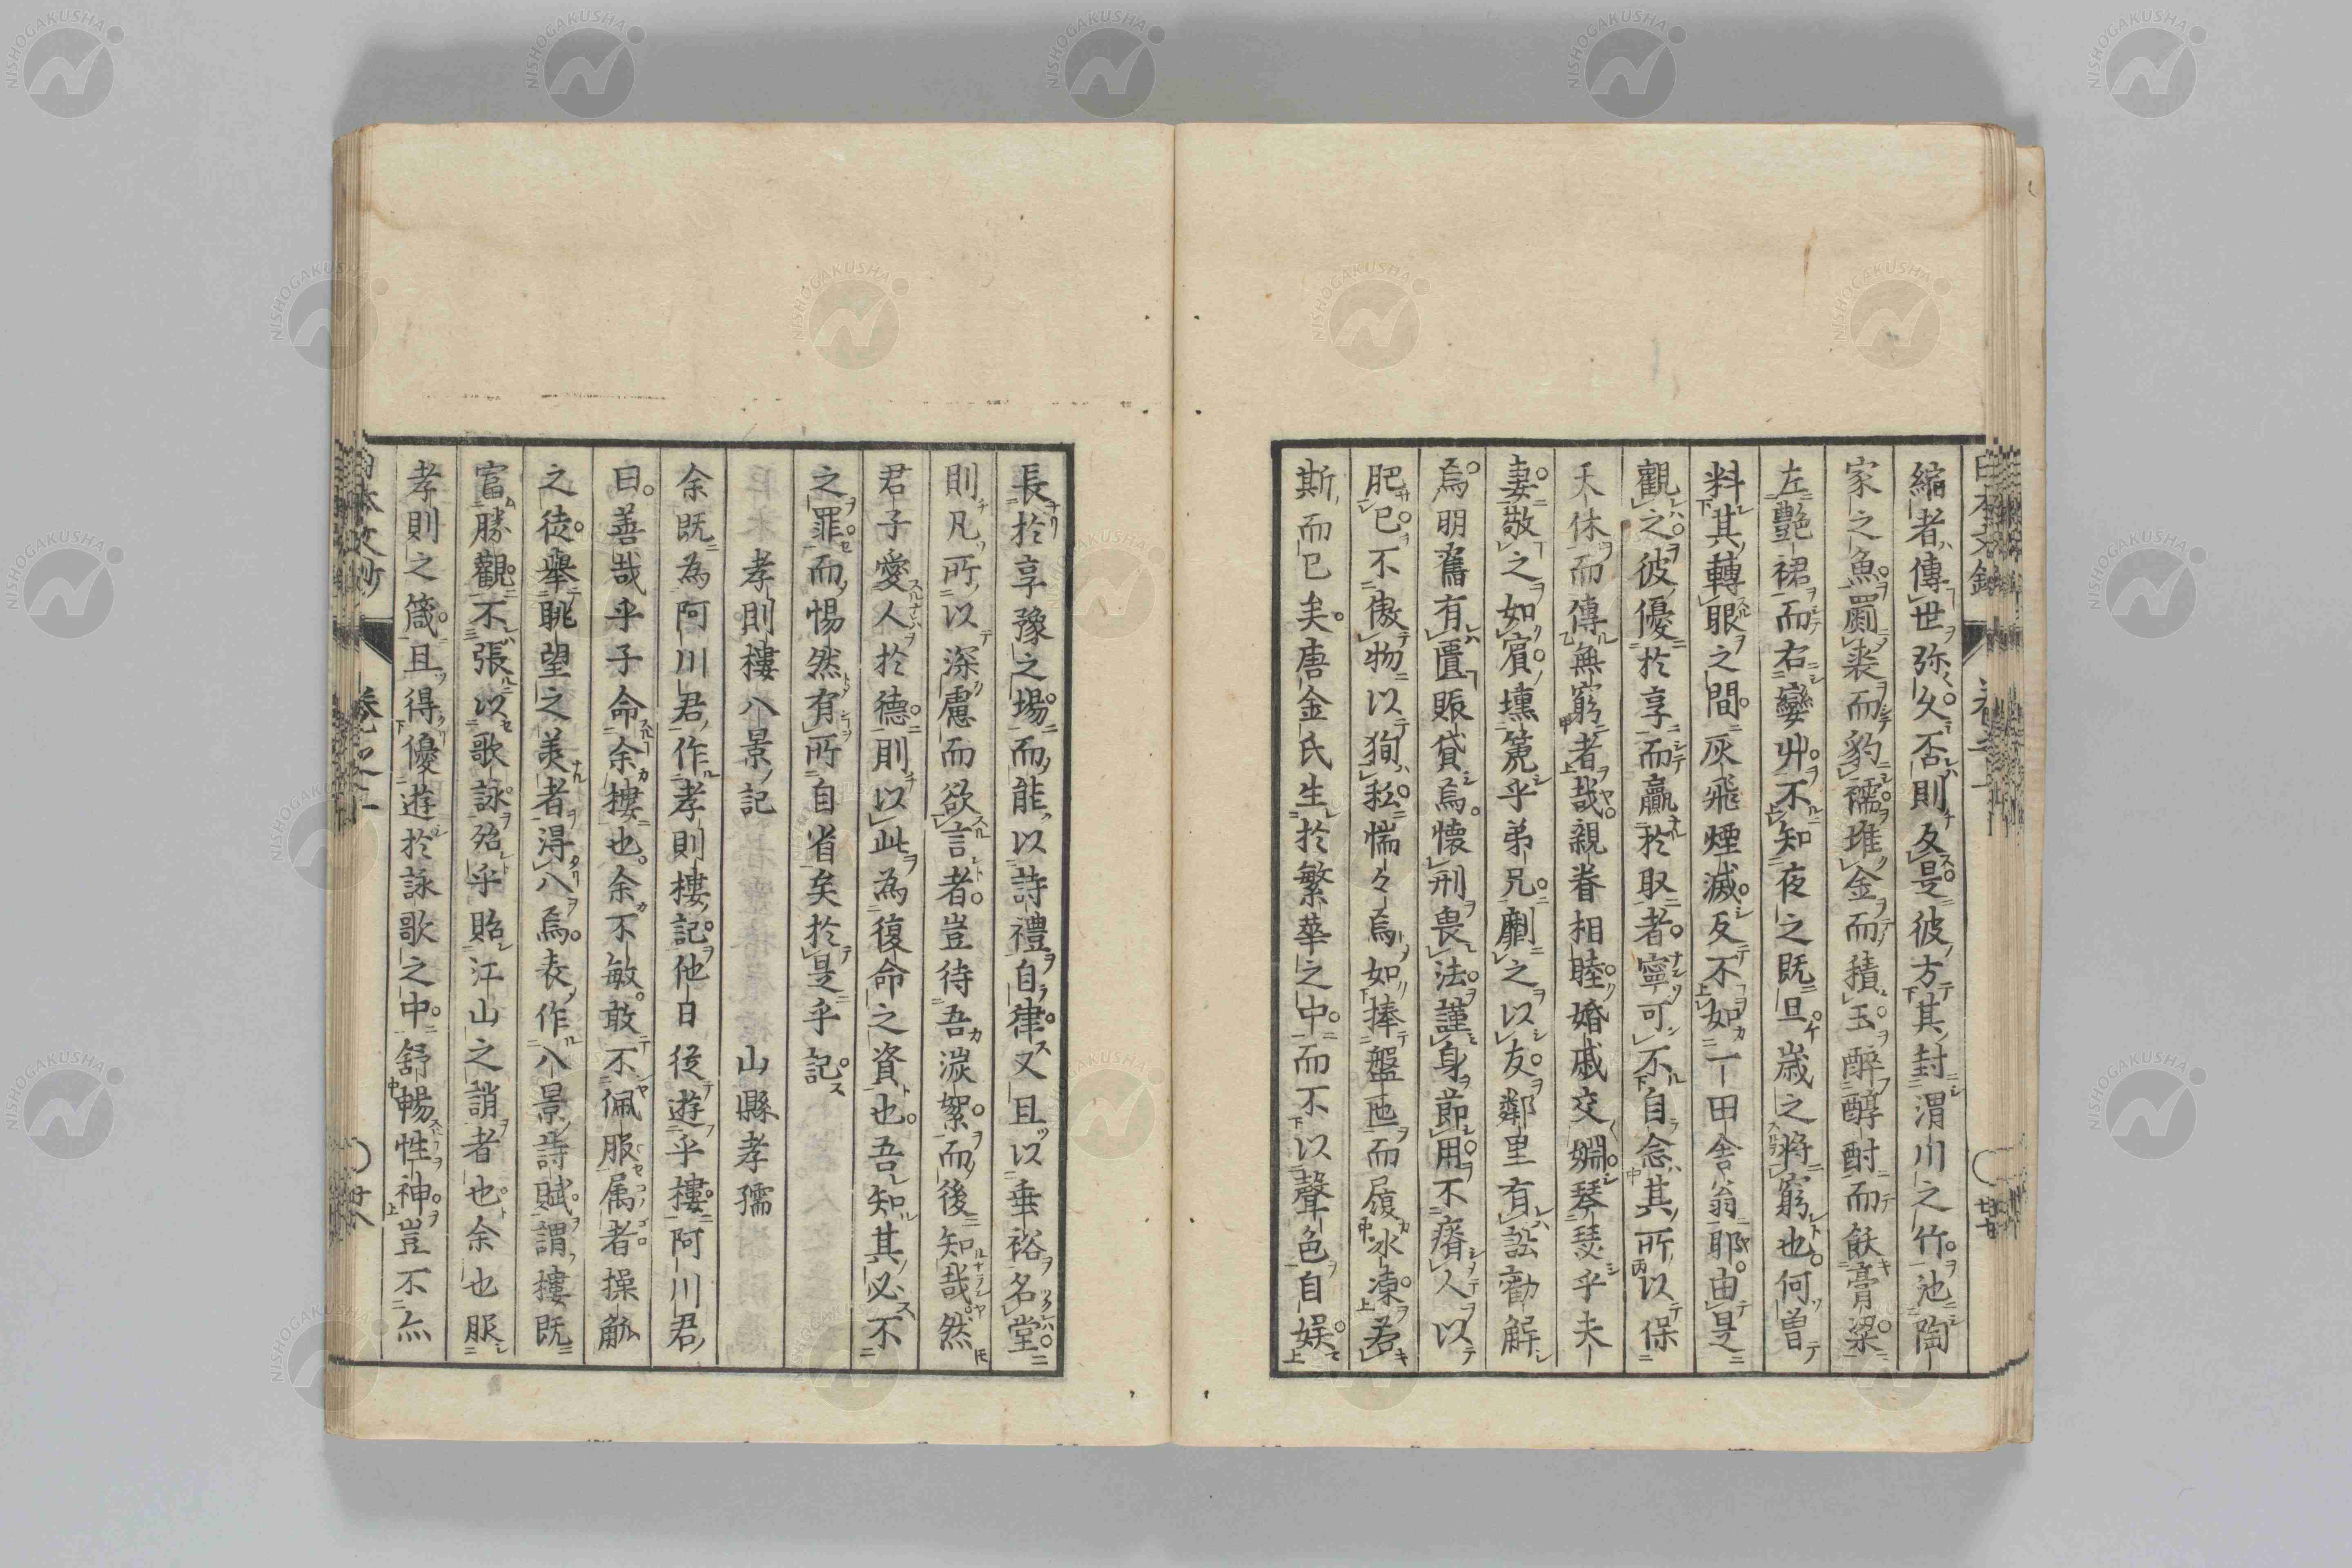 縮者傳世弥久否則反是彼方其封渭川之竹池陶
家之魚罽裘而豹襦堆金而積玉醉醇酎而飫膏粱
左艷裙而右孌丱不知夜之既旦歳之將窮也何曽
料其轉眼之間灰飛煙滅反不如一田舎翁耶由是
觀之彼優於享而贏於取者寧可不自念其所以保
天休而傳無窮者哉親眷相睦婚戚交婣琴瑟乎夫
妻敬之如賔壎箎乎弟兄劘之以友鄰里有訟勸解
焉明舊有匱賑貸焉懷刑畏法謹身節用不瘠人以
肥己不傲物以狥私惴々焉如捧盤匜而履冰凍若
斯而已矣唐金氏生於繁華之中而不以聲色自娯
長於享豫之場而能以詩禮自律又且以垂裕名堂
則凡所以深慮而欲言者豈待吾湠絮而後知哉然
君子愛人於德則以此為復命之資也吾知其必不
之罪而惕然有所自省矣於是乎記
孝則樓八景記
山縣孝孺
余既為阿川君作孝則樓記他日従遊乎樓阿川君
曰善哉乎子命余樓也余不敏敢不佩服属者操觚
之徒舉眺望之美者得八焉表作八景詩賦謂樓既
富勝觀不張以歌詠殆乎貽江山之誚者也余也服
孝則之箴且得優遊於詠歌之中舒暢性神豈不亦